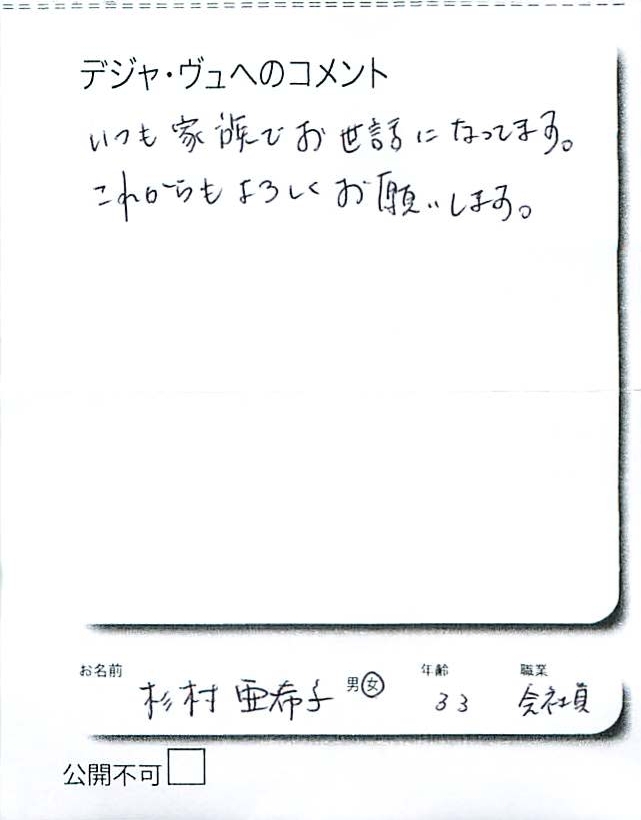 デジャ・ヴュへのコメント
いつも家族でお世話になってます。
これからもよろしくお願いします。
お名前 杉村亜希子 男女 年齢 33 職業 会社員
公開不可